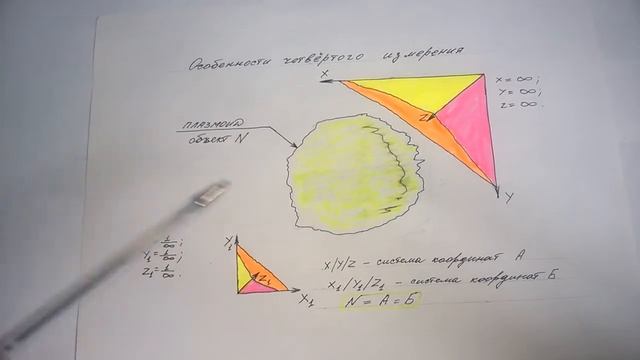 Особенности четвёртого измерения
X
X = ∞;
Y = ∞;
Z = ∞.
Z
Y
ПЛАЗМОИД
объект N
Y₁
1/∞;
Y₁ = 1/∞;
Z₁ = 1/∞.
Z₁
X₁
X/Y/Z – система координат А
X₁/Y₁/Z₁ – система координат Б
N = А = Б